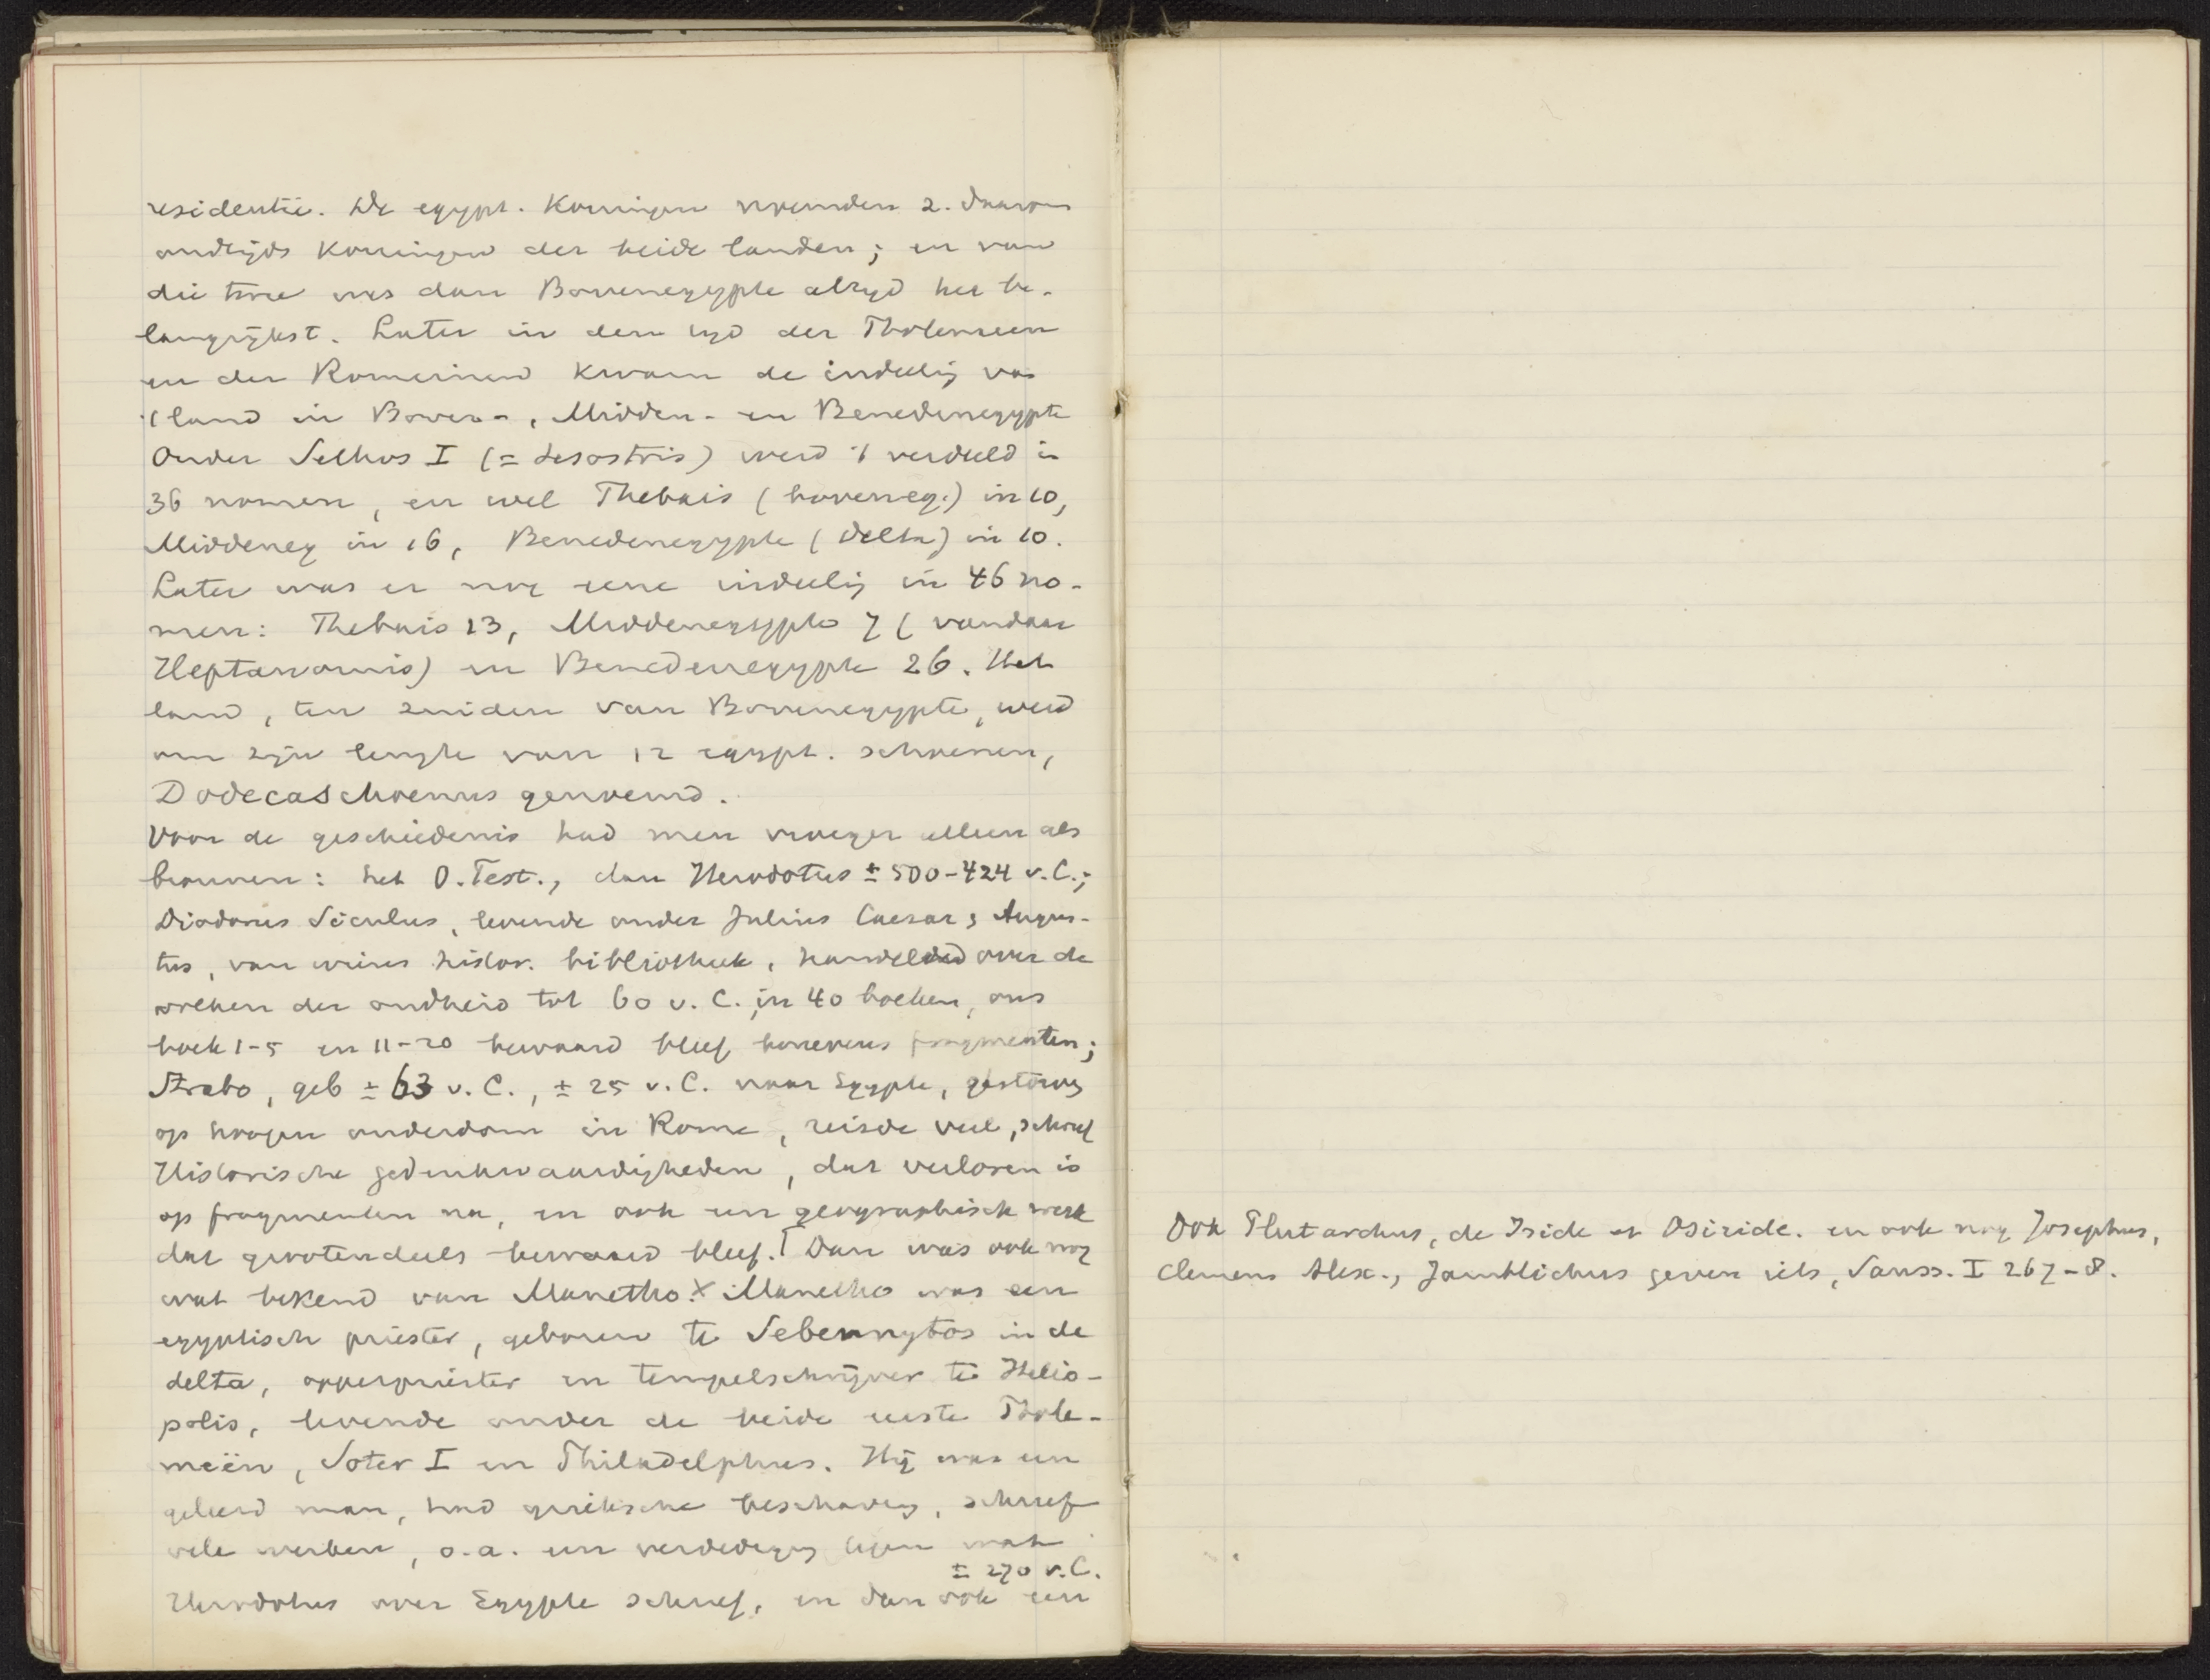 residentie. De egypt. Koningen noemden z. daarom
oudtijds Koningen der beide landen; en van
die twee was dan Bovenegypte altyd het be-
langrijkst. Later in den tyd der Ptolemeen
en der Romeinen kwam de indeeling van
't land in Boven-, Midden- en Benedenegypte
Onder Sethos I (= Sesostris) werd 't verdeeld in
36 nomen, en wel Thebais (boveneg.) in 10,
Middeneg in 16, Benedenegypte (Delta) in 10.
Later was er nog eene indeeling in 46 no-
men: Thebais 13, Middenegypte 7 (vandaar
Heptanomis) en Benedenegypte 26. Het
land, ten zuiden van Bovenegypte, werd
om zijn lengte van 12 egypt. schoenen,
Dodecaschoenus genoemd.
Voor de geschiedenis had men vroeger alleen als
bronnen: het O. Test., dan Herodotus ± 500-424 v.C.;
Diodorus Siculus, levende onder Julius Caesar & Augus-
tus, van wiens histor. bibliotheek, handelend over de
weken der oudheid tot 60 v. C., in 40 boeken, ons
boek 1-5 en 11-20 bewaard bleef benevens fragmenten;
Strabo, geb ± 63 v. C., ± 25 v. C. naar Egypte, gestorven
op hoogen ouderdom in Rome, reisde veel, schreef
Historische gedenkwaardigheden, dat verloren is
op fragmenten na, en ook een geographisch werk
dat grootendeels bewaard bleef. Γ Dan was ook nog
wat bekend van Manetho. X Manetho was een
egyptisch priester, geboren te Sebennytos in de
delta, opperpriester en tempelschrijver te Helio-
polis, levende onder de beide eerste Ptole-
meën, Soter I en Philadelphus. Hij was een
geleerd man, had grieksche beschaving, schreef
vele werken, o.a. een verdediging tegen wat
± 270 v.C.
Herodotus over Egypte schreef, en dan ook een
Ook Plutarchus, de Iside et Osiride. en ook nog Josephus,
Clemens Alex., Jamblichus geven iets, Sauss. I 267-8.